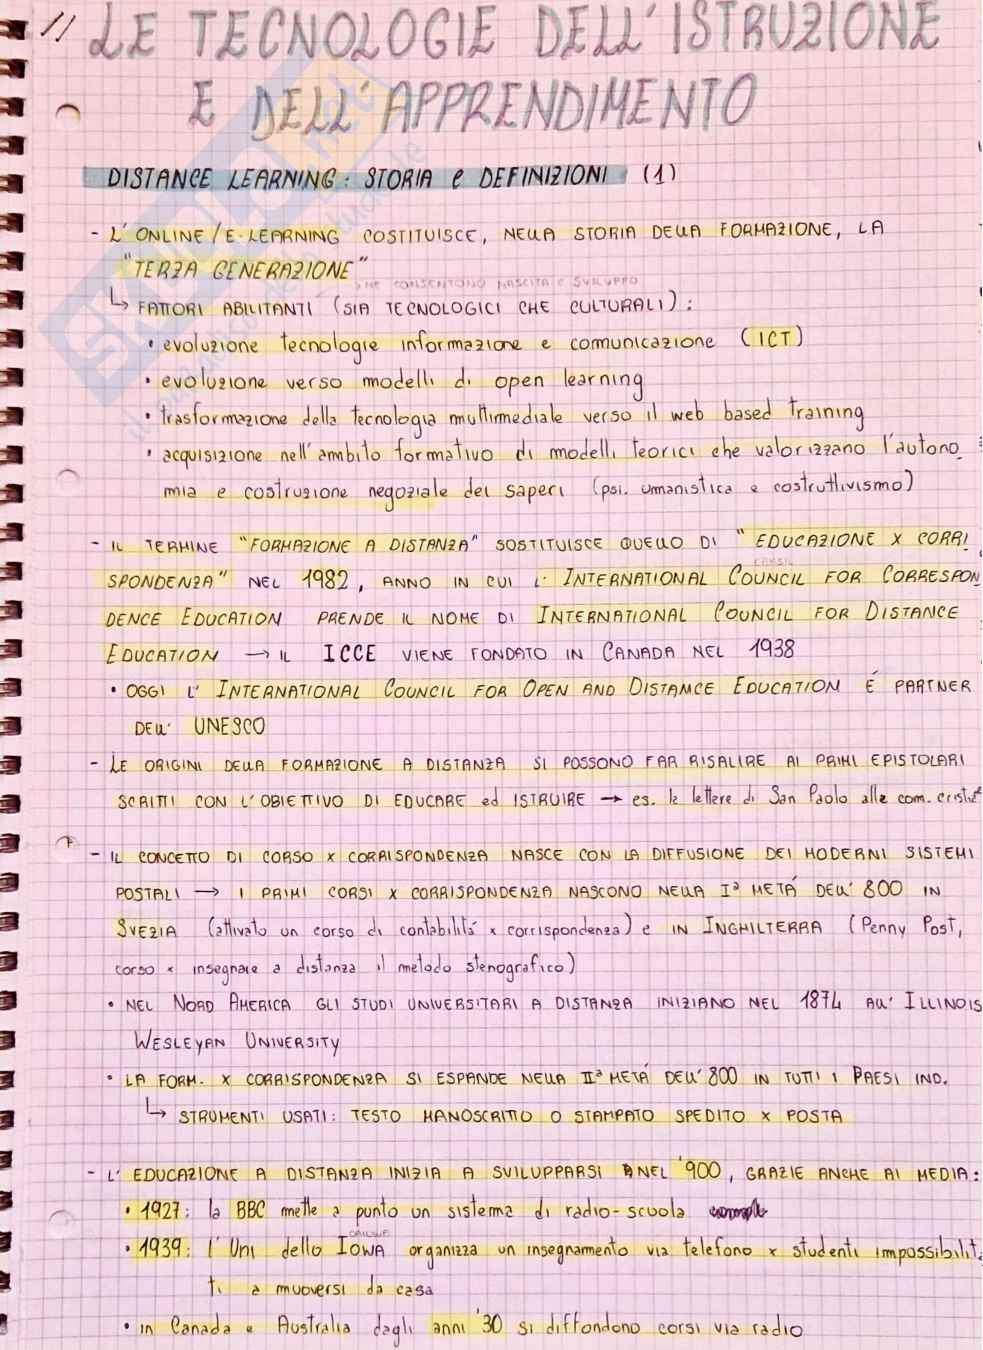 // LE TECNOLOGIE DELL'ISTRUZIONE
E DELL'APPRENDIMENTO
DISTANCE LEARNING: STORIA e DEFINIZIONI (1)
- L'ONLINE/E-LEARNING COSTITUISCE, NELLA STORIA DELLA FORMAZIONE, LA
"TERZA GENERAZIONE"
CHE CONSENTONO NASCITA E SVILUPPO
↳ FATTORI ABILITANTI (SIA TECNOLOGICI CHE CULTURALI):
• evoluzione tecnologie informazione e comunicazione (ICT)
• evoluzione verso modelli di open learning
• trasformazione della tecnologia multimediale verso il web based training
• acquisizione nell'ambito formativo di modelli teorici che valorizzano l'autono
mia e costruzione negoziale dei saperi (psi. umanistica e costruttivismo)
- IL TERMINE "FORMAZIONE A DISTANZA" SOSTITUISCE QUELLO DI "EDUCAZIONE X CORRI
SPONDENZA" NEL 1982, ANNO IN CUI L'INTERNATIONAL COUNCIL FOR CORRESPON
DENCE EDUCATION PRENDE IL NOME DI INTERNATIONAL COUNCIL FOR DISTANCE
EDUCATION → IL ICCE VIENE FONDATO IN CANADA NEL 1938
• OGGI L'INTERNATIONAL COUNCIL FOR OPEN AND DISTANCE EDUCATION É PARTNER
DELL' UNESCO
- LE ORIGINI DELLA FORMAZIONE A DISTANZA SI POSSONO FAR RISALIRE AI PRIMI EPISTOLARI
SCRITTI CON L'OBIETTIVO DI EDUCARE ed ISTRUIRE → es. le lettere di San Paolo alle com. cristi
- IL CONCETTO DI CORSO X CORRISPONDENZA NASCE CON LA DIFFUSIONE DEI MODERNI SISTEMI
POSTALI → I PRIMI CORSI X CORRISPONDENZA NASCONO NELLA Iª METÁ DELL'800 IN
SVEZIA (attivato un corso di contabilitá x corrispondenza) e IN INGHILTERRA (Penny Post,
corso x insegnare a distanza il metodo stenografico)
• NEL NORD AMERICA GLI STUDI UNIVERSITARI A DISTANZA INIZIANO NEL 1874 ALL'ILLINOIS
WESLEYAN UNIVERSITY
• LA FORM. X CORRISPONDENZA SI ESPANDE NELLA IIª METÁ DELL'800 IN TUTTI I PAESI IND.
↳ STRUMENTI USATI: TESTO MANOSCRITTO O STAMPATO SPEDITO X POSTA
- L'EDUCAZIONE A DISTANZA INIZIA A SVILUPPARSI NEL '900, GRAZIE ANCHE AI MEDIA:
• 1927: la BBC mette a punto un sistema di radio-scuola
• 1939: l'Uni dello IOWA organizza un insegnamento via telefono x studenti impossibilita
ti a muoversi da casa
• in Canada e Australia dagli anni '30 si diffondono corsi via radio